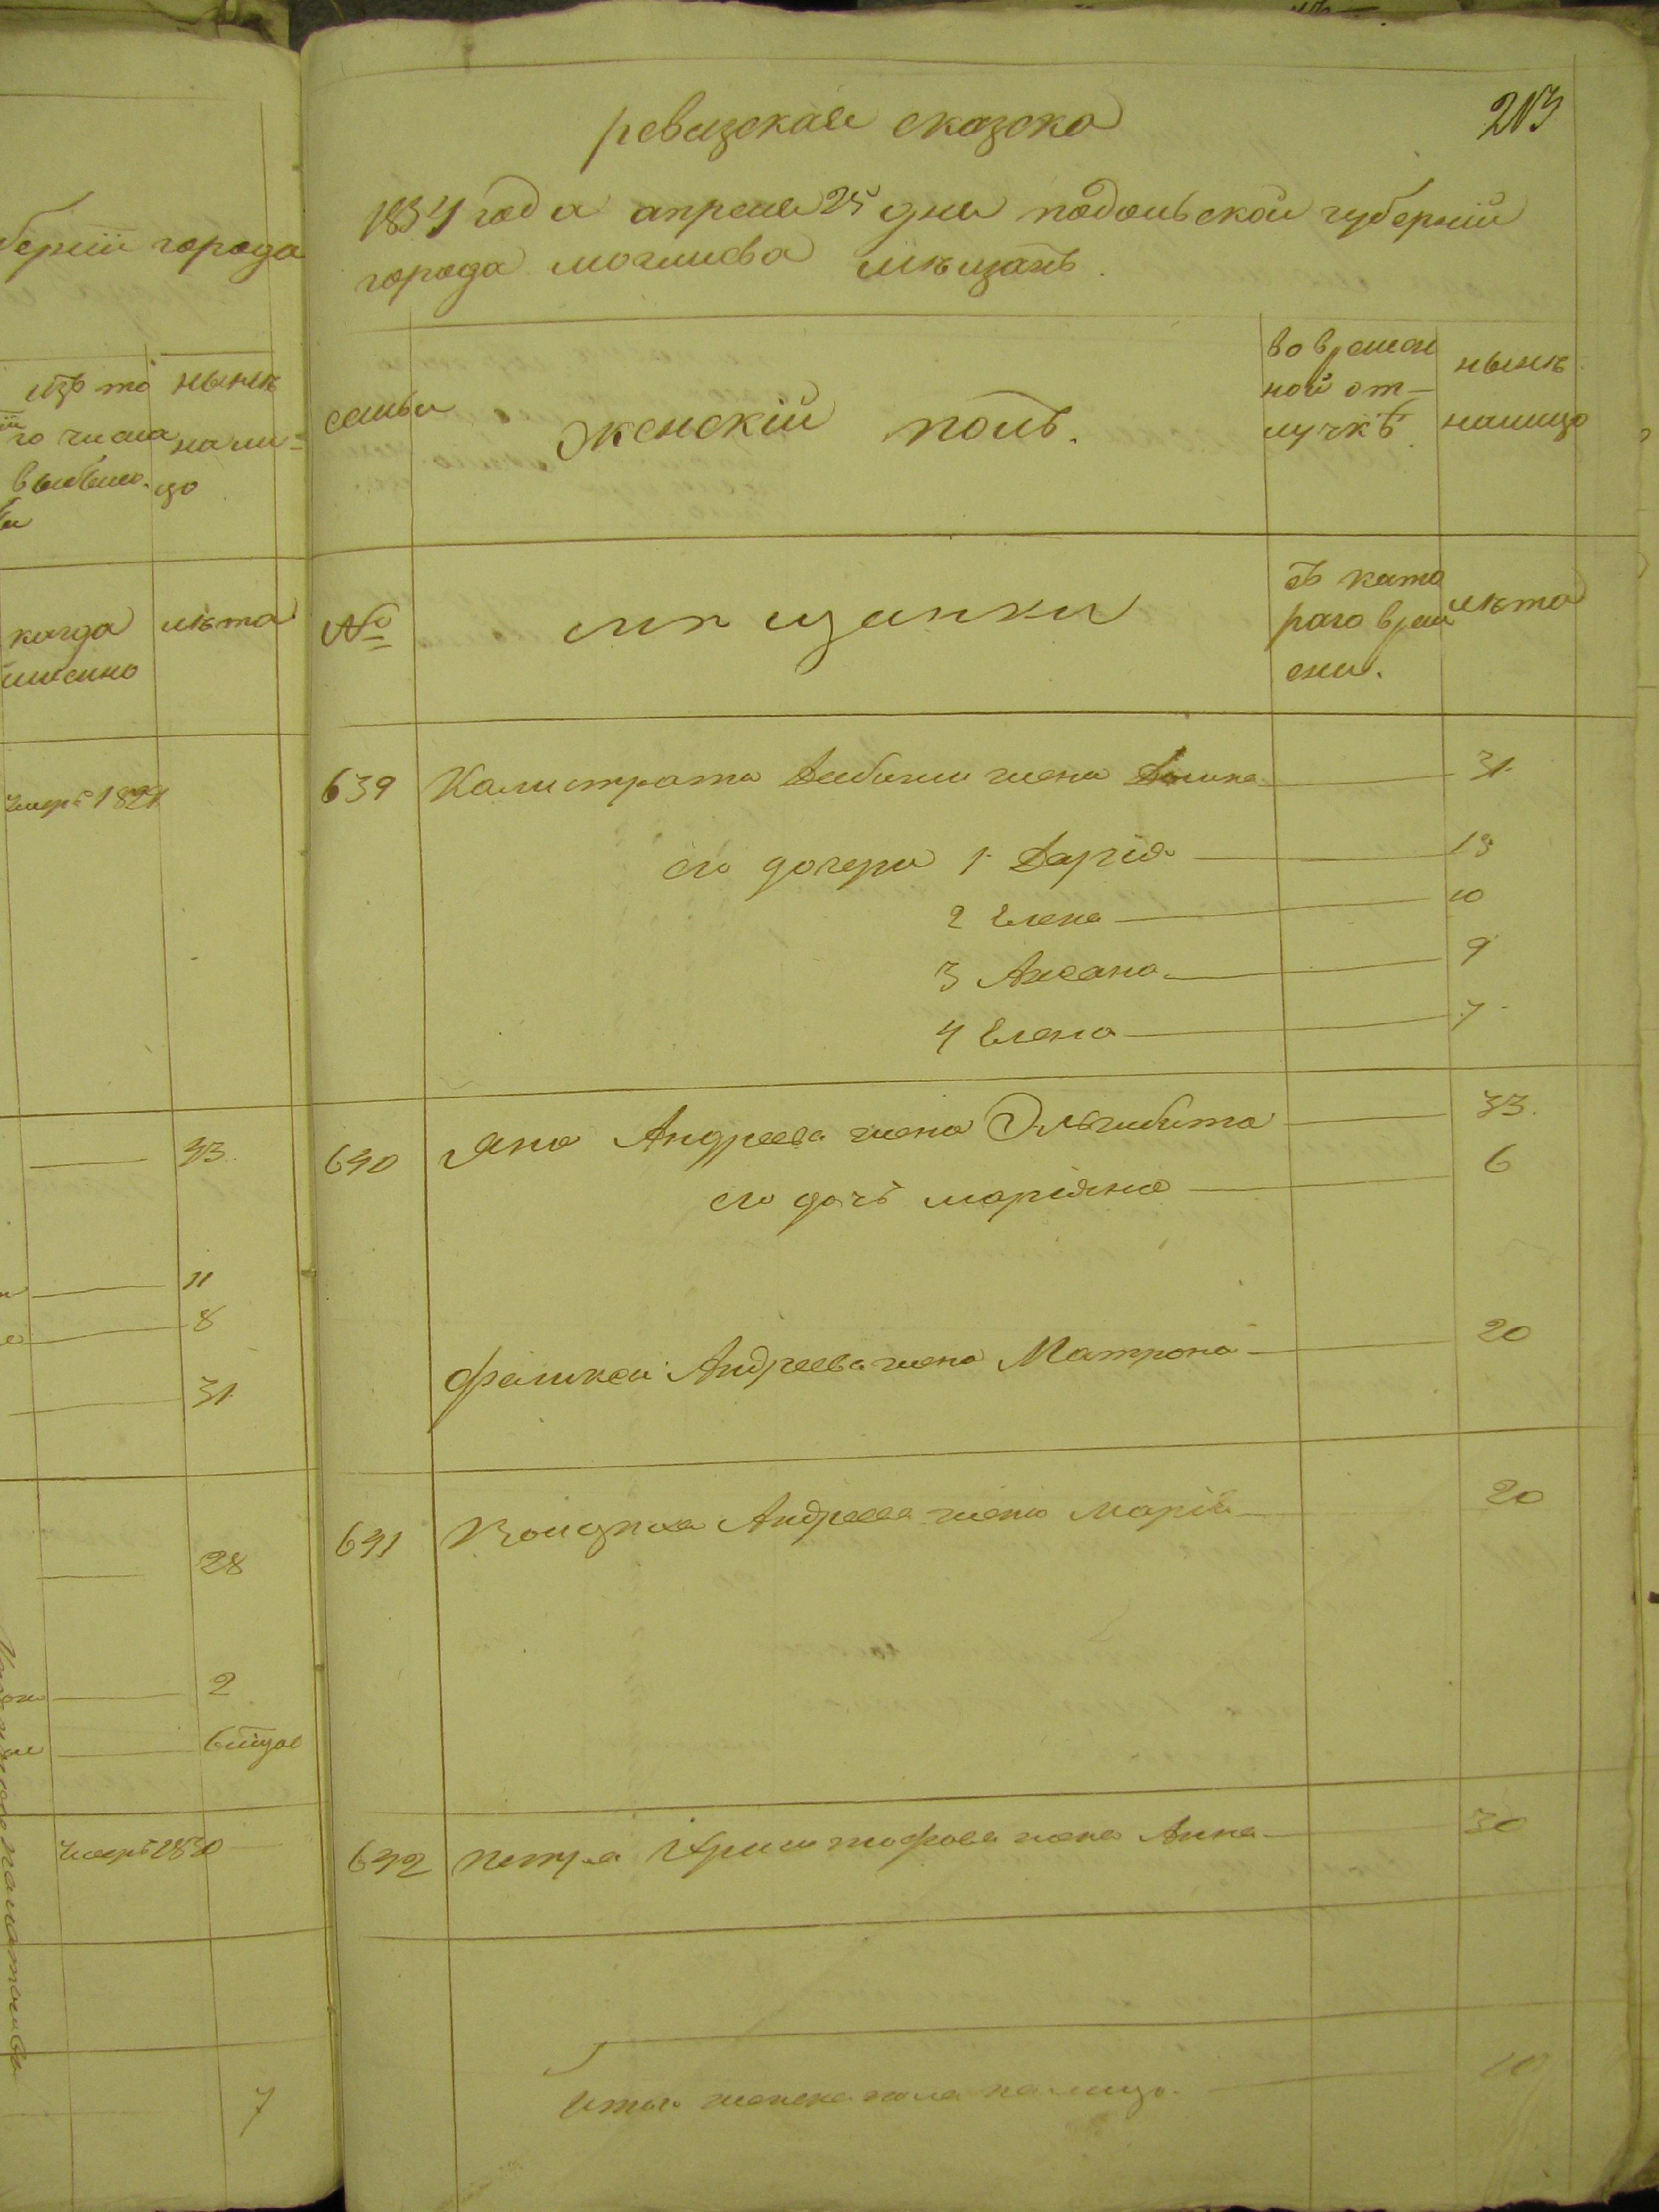 берніи города
изъ то
го числа
выбыло.
ныне
нали=
цо
когда
имѣнно
лѣта
умеръ 1821
33.
11
8
31
28
2
6 мѣцов
умеръ 1830
7
ревизская сказска
213
1834 года апреля 25 дня подольской губерніи
города могилева мѣщанъ.
семьи
женскій полъ.
во времен
ной от–
лучкѣ.
нынѣ
налицо
№
мѣщанки
съ като
раго врем
ени.
лѣта
639 Калистрата жена 31.
его дочери 1 Дарія 13
2 Елена 10
3 Аксана 9
4 Елена 7
640 Яна Андреева жена Эльжбита 33.
его дочь маріяна 6
Андреева жена Матрона 20
641 Андреева жена марія 20
642 петра Криштофова жена Анна 30
Итого женска пола налицо. 10